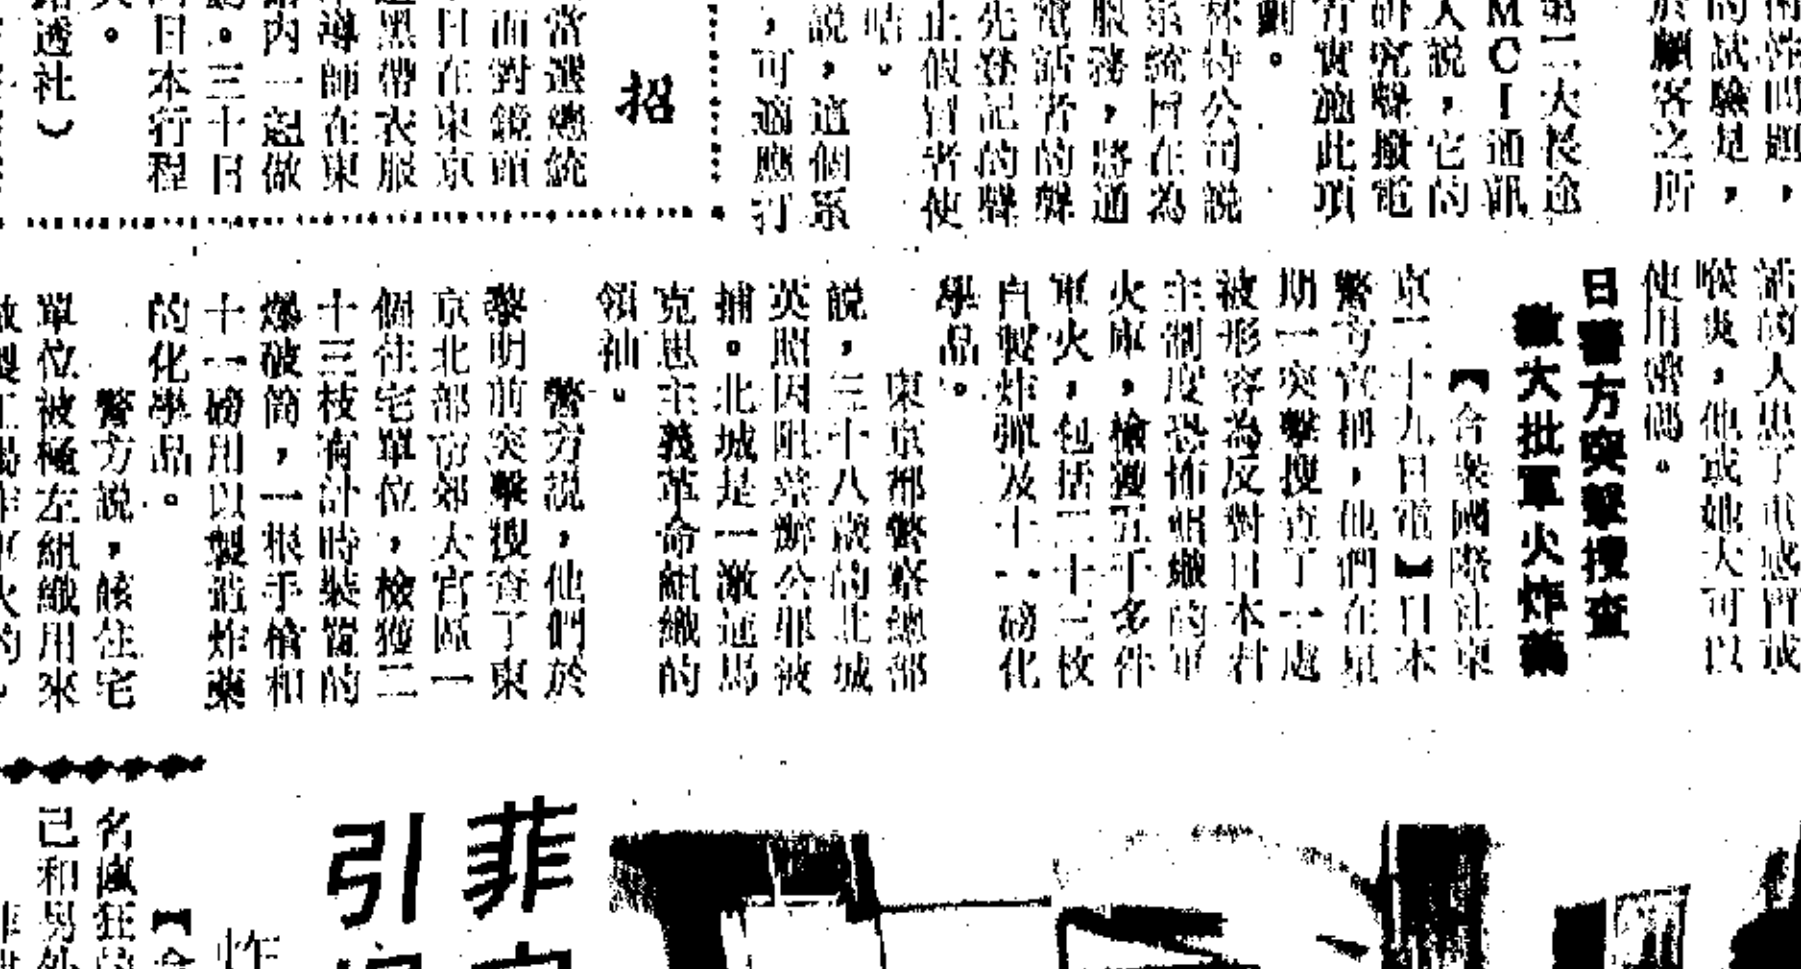 於顧客之所
的試驗是，
第二大長途
MCI通訊
人說，它的
研究聲撥電
有實施此項
林特公司說
系統旨在為
服務，將通
電話者的聲
先登記的聲
止假冒者使
說，這個系
，可適應打
招
當選總統
面對鏡頭
日在東京
黑帶衣服
導師在東
路內一起做
。三十日
日本行程
路透社）
喉炎，他或她大可以
使用密碼。
日警方突擊搜查
繳大批軍火炸藥
【合眾國際社東
京二十九日電】日本
警方官稱，他們在星
期一突擊搜查了一處
被形容為反對日本君
主制度恐怖組織的軍
火庫，檢獲五千多件
軍火，包括二十三枚
自製炸彈及十一磅化
學品。
東京都警察總部
說，三十八歲的北城
英照因阻差辦公罪被
捕。北城是一激進馬
克思主義革命組織的
領袖。
警方說，他們於
黎明前突擊搜查了東
京北部市郊大宮區一
個住宅單位，檢獲二
十三枝有計時裝置的
爆破筒，一根手槍和
十一磅用以製造炸藥
的化學品。
警方說，該住宅
單位被極左組織用來
菲
引
炸
名瘋狂
己和另外